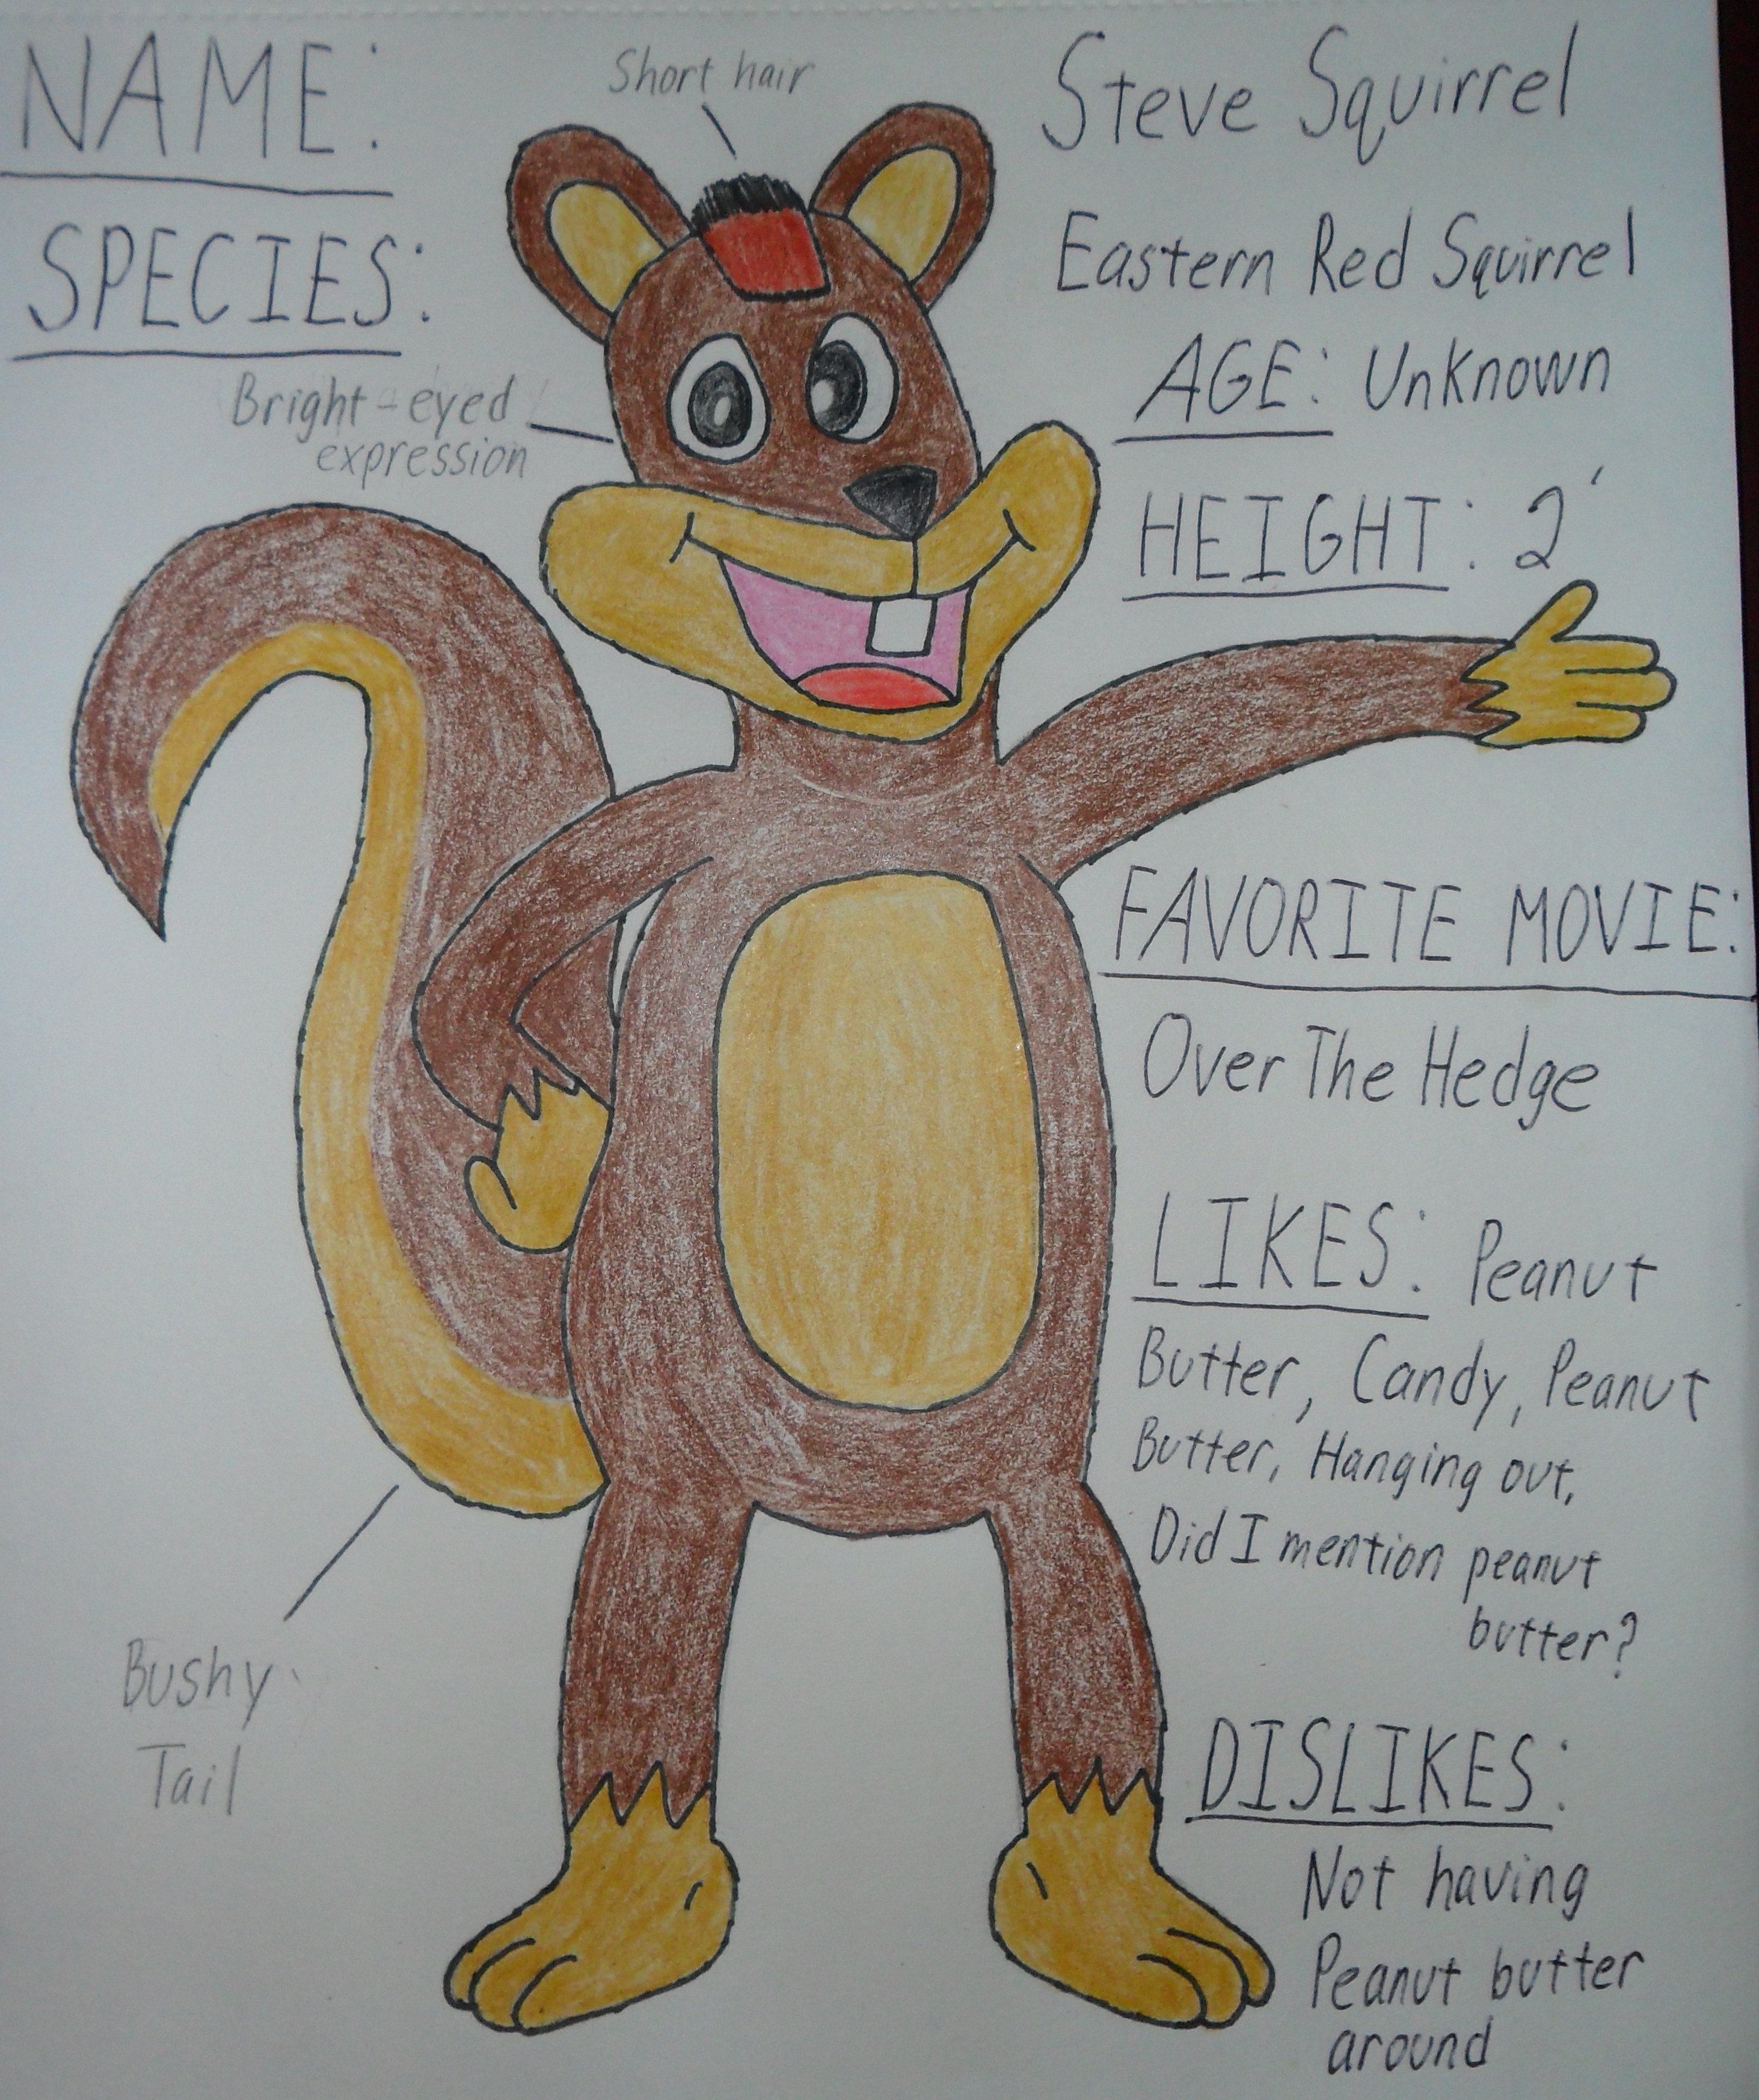 NAME:
Short hair
Steve Squirrel
SPECIES:
Eastern Red Squirrel
Bright-eyed
expression
AGE: Unknown
HEIGHT: 2'
FAVORITE MOVIE:
Over The Hedge
LIKES: Peanut
Butter, Candy, Peanut
Butter, Hanging out,
Did I mention peanut
butter?
Bushy
Tail
DISLIKES:
Not having
Peanut butter
around